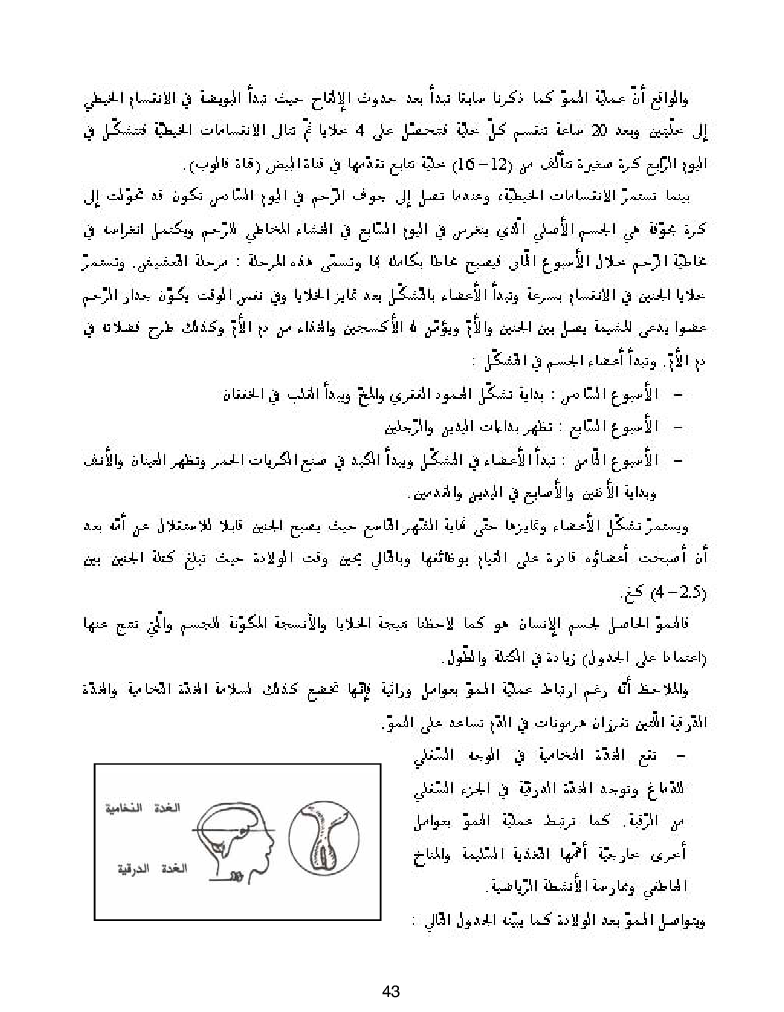 والواقع أنّ عمليّة النموّ كما ذكرنا سابقا تبدأ بعد حدوث الإلقاح حيث تبدأ البويضة في الانقسام الخيطي
إلى خليّتين وبعد 20 ساعة تنقسم كلّ خليّة فتتحصّل على 4 خلايا ثمّ تتالى الانقسامات الخيطيّة فتتشكّل في
اليوم الرّابع كرة صغيرة تتألّف من (12 – 16) خليّة تتابع تقدّمها في قناة المبيض (قناة فالوب).
بينما تستمرّ الانقسامات الخيطيّة، وعندما تصل إلى جوف الرّحم في اليوم السّادس تكون قد تحوّلت إلى
كرة مجوّفة هي الجسم الأصلي الّذي ينغرس في اليوم السّابع في الغشاء المخاطي للرّحم ويكتمل انغراسه في
مخاطيّة الرّحم خلال الأسبوع الثّاني فيصبح محاطا بكامله بها وتسمّى هذه المرحلة : مرحلة التّعشيش. وتستمرّ
خلايا الجنين في الانقسام بسرعة وتبدأ الأعضاء بالتّشكّل بعد تمايز الخلايا وفي نفس الوقت يكوّن جدار الرّحم
عضوا يدعى المشيمة يصل بين الجنين والأمّ ويؤمّن له الأكسجين والغذاء من دم الأمّ وكذلك طرح فضلاته في
دم الأمّ. وتبدأ أعضاء الجسم في التّشكّل :
– الأسبوع السّادس : بداية تشكّل العمود الفقري والمخّ ويبدأ القلب في الخفقان
– الأسبوع السّابع : تظهر بداءات اليدين والرّجلين
– الأسبوع الثّامن : تبدأ الأعضاء في التّشكّل ويبدأ الكبد في صنع الكريات الحمر وتظهر العينان والأنف
وبداية الأذنين والأصابع في اليدين والقدمين.
ويستمرّ تشكّل الأعضاء وتمايزها حتّى نهاية الشّهر التّاسع حيث يصبح الجنين قابلا للاستقلال عن أمّه بعد
أن أصبحت أعضاؤه قادرة على القيام بوظائفها وبالتّالي يحين وقت الولادة حيث تبلغ كتلة الجنين بين
(2.5 – 4) كغ.
فالنموّ الحاصل لجسم الإنسان هو كما لاحظنا نتيجة الخلايا والأنسجة المكوّنة للجسم والّتي نتج عنها
(اعتمادا على الجدول) زيادة في الكتلة والطّول.
والملاحظ أنّه رغم ارتباط عمليّة النموّ بعوامل وراثية فإنّها تخضع كذلك لسلامة الغدّة النّخامية والغدّة
الدّرقية اللّتين تفرزان هرمونات في الدّم تساعد على النموّ.
– تقع الغدّة النّخامية في الوجه السّفلي
للدّماغ وتوجد الغدّة الدرقيّة في الجزء السّفلي
من الرّقبة. كما ترتبط عمليّة النموّ بعوامل
أخرى خارجيّة أهمّها التّغذية السّليمة والمناخ
العاطفي وممارسة الأنشطة الرّياضية.
الغدة النخامية
الغدة الدرقية
ويتواصل النموّ بعد الولادة كما يبيّنه الجدول التّالي :
43